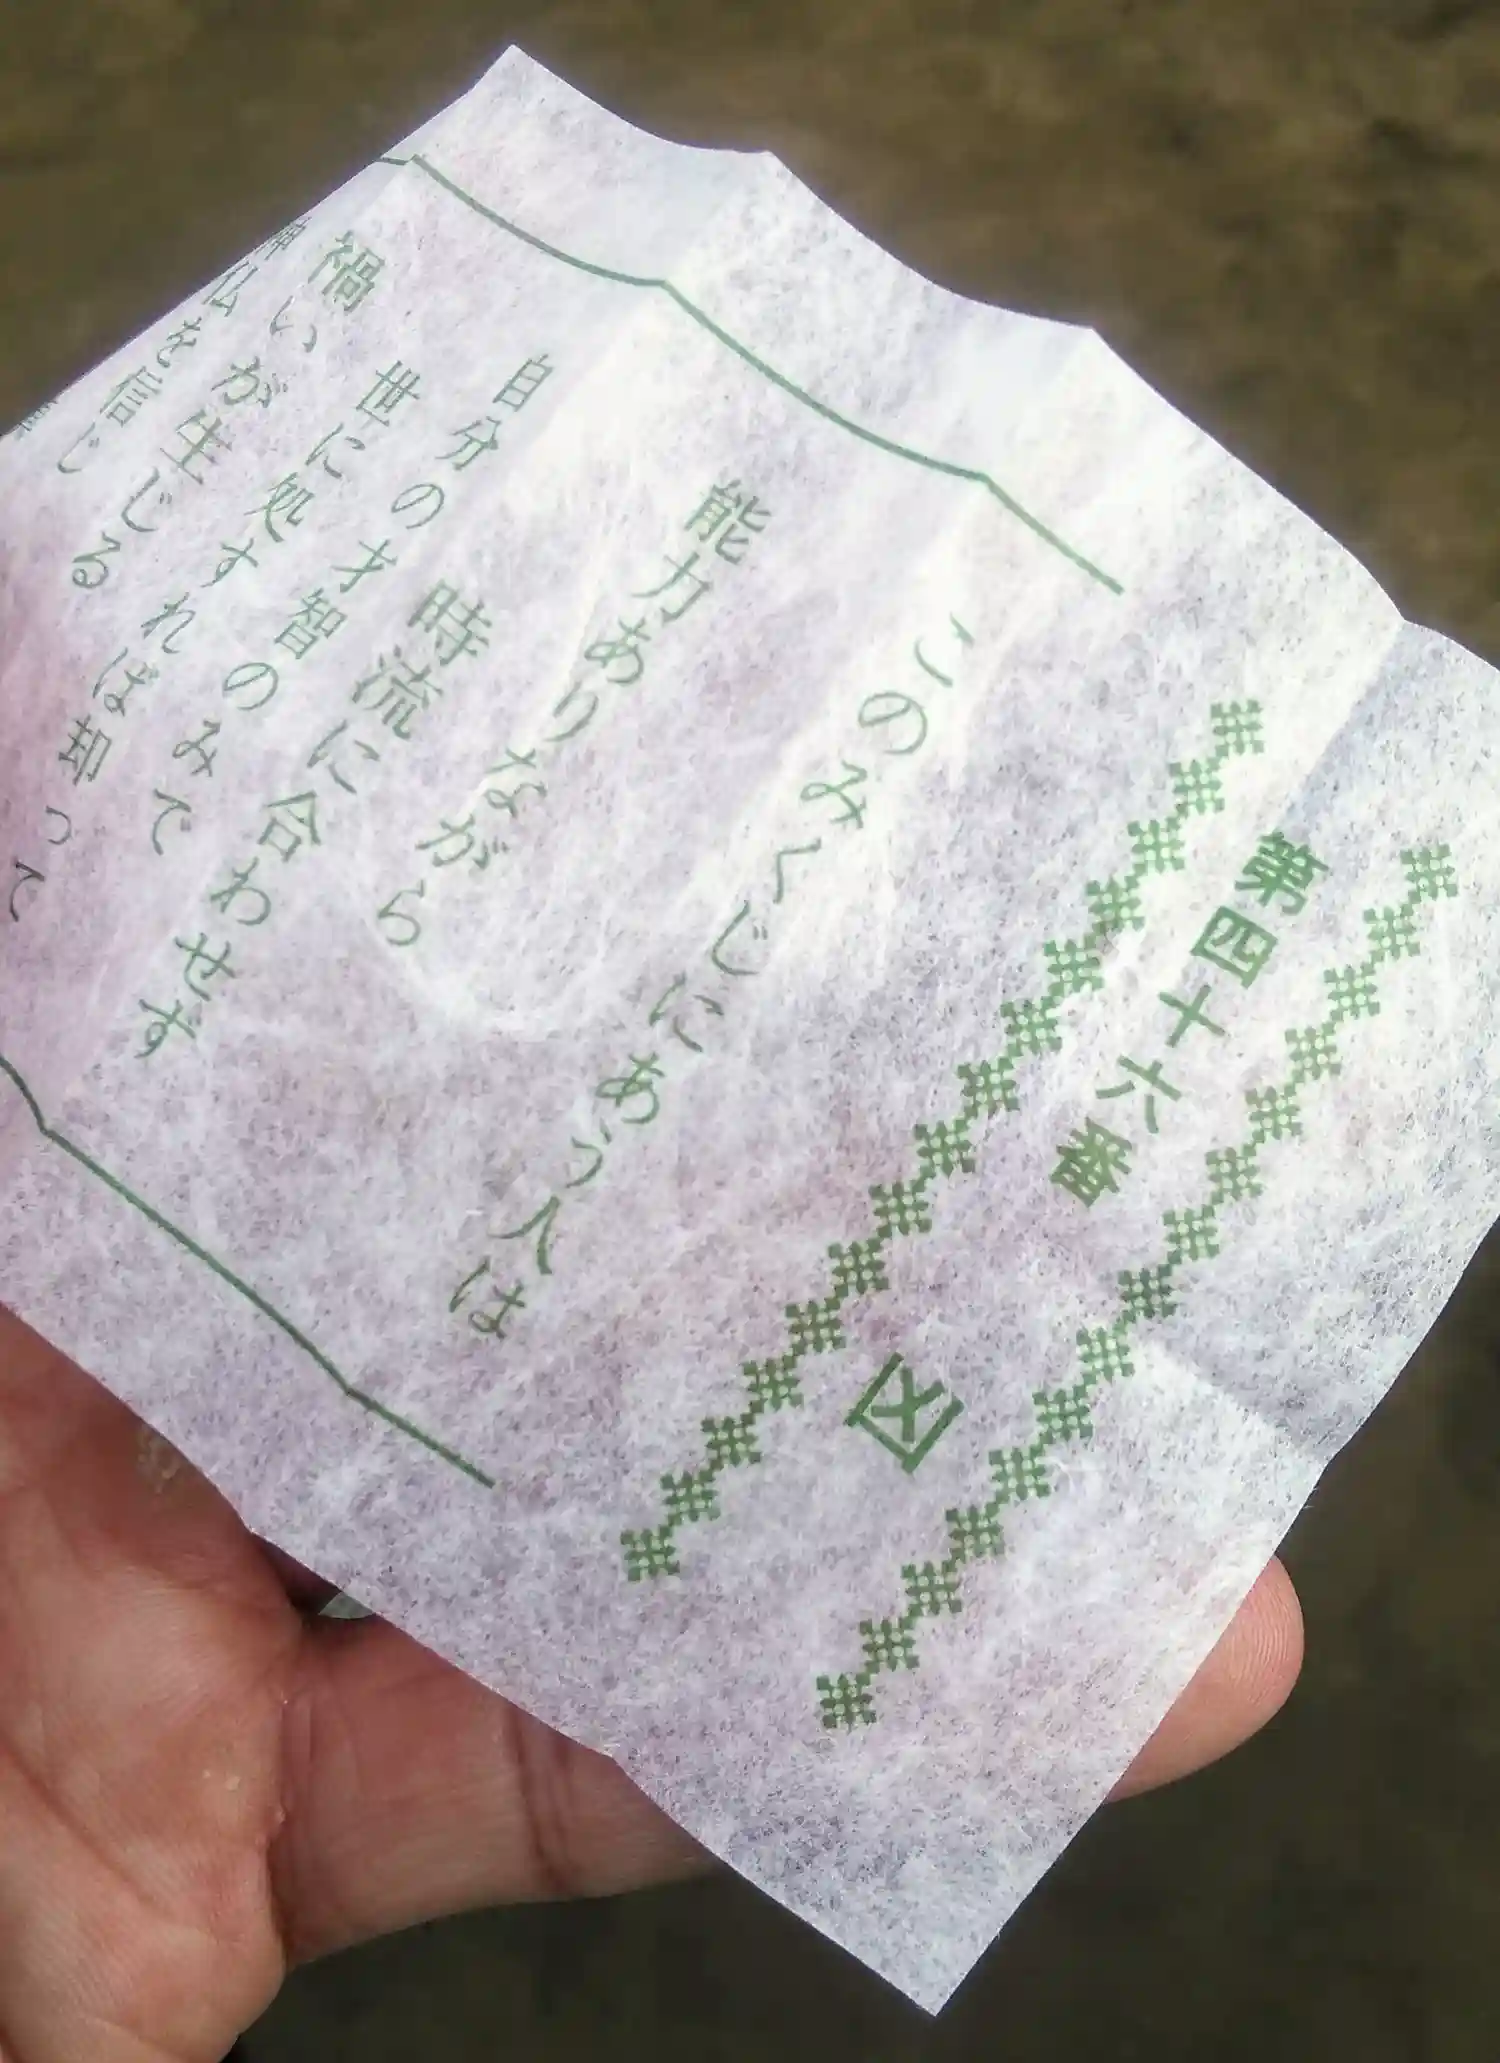 第四十六番 凶
このみくじにあう人は
能力ありながら
時流に合わせず
自分の才智のみて
世に処すれば却って
禍いが生じる
神仏を信じ